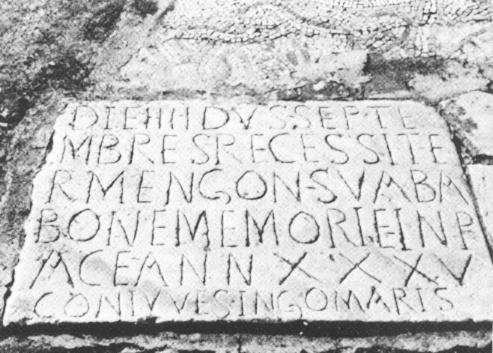 DIE IIII DVSSEPTE
MBRESRECESSITE
RMENGONSVABA
BONEMEMORIEINP
ACEANNXXXV
CONIVVESINGOMARIS